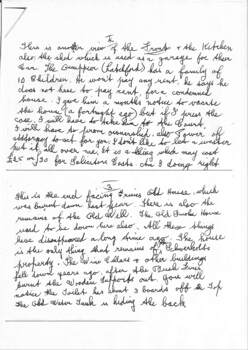 I
This is another view of the Front & the Kitchen
also the shed which is used as a garage for their
Car. The Occupier (Letchford) has a family of
10 Children. He won't pay any rent, he says he
does not have to pay rent, for a condemned
house. I give him a months notice to vacate
the house (a fortnight ago) but if I press the
case, I will have to take him to the Court,
I will have to prove ownership, also Power off
attorney to act for you. I don't like to let a matter
but it all over me, it is a thing which may cost
£25 or /30 for Solicitors Costs. Am I doing right
3
This is the end facing Ernies Old House, which
was burnt down last year. There is also the
remains of the Old Well. The Old Smoke House
used to be down here also. All these things
have disappeared a long time ago. The house
is the only thing that remains of
property. The Wine Cellars & other buildings
fell down years ago, after the Bush Fires
burnt the Wooden Supports out. You will
notice the Toilet has about 3 boards off the Top
The Old Water Tank is hiding the back